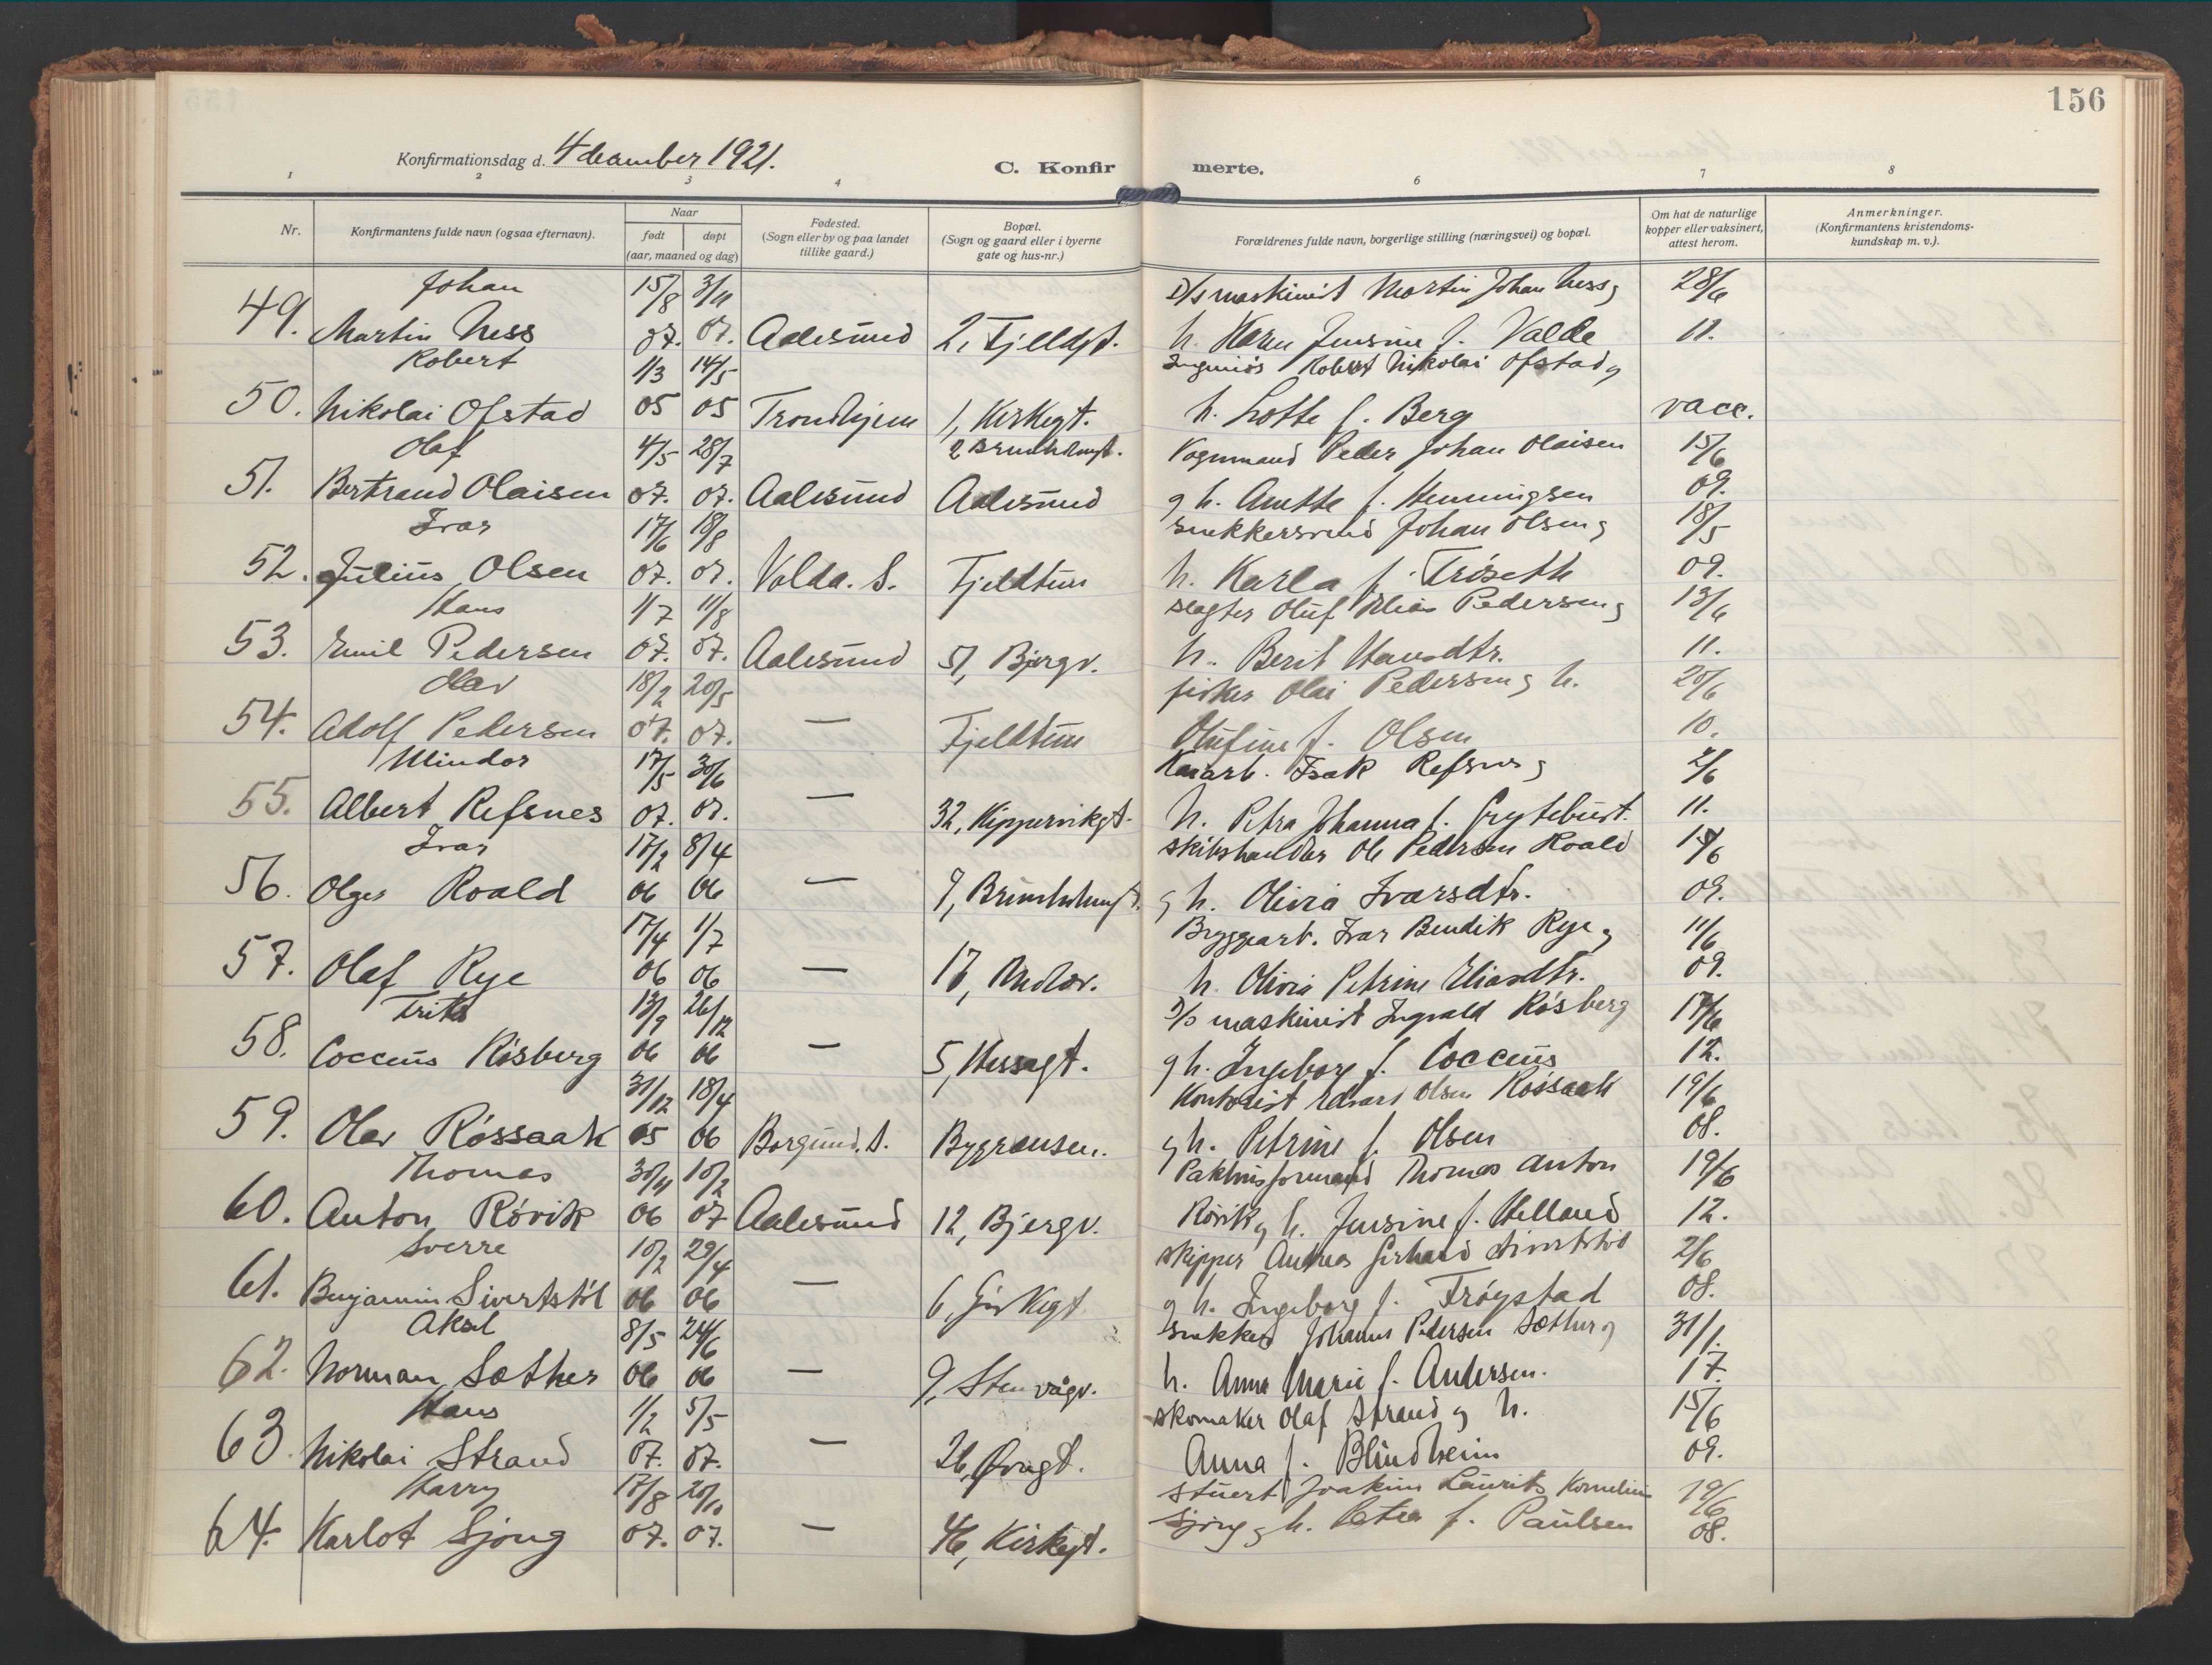 156
Konfirmationsdag d. 4 december 1921.
C. Konfirmerte.
1 2 3 4 6 7 8
Nr.
Konfirmantens fulde navn (ogsaa efternavn).
Naar
født døpt
(aar, maaned og dag)
Fødested.
(Sogn eller by og paa landet
tillike gaard.)
Bopæl.
(Sogn og gaard eller i byerne
gate og hus-nr.)
Forældrenes fulde navn, borgerlige stilling (næringsvei) og bopæl.
Om hat de naturlige
kopper eller vaksinert,
attest herom.
Anmerkninger.
(Konfirmantens kristendoms-
kundskap m. v.).
Johan 15/8 3/11 D/s maskinist Martin Johan Ness og 28/6
49. Martin Ness 07. 07. Aalesund 2, Fjeldgt. h. Karen Jensine f. Valde 11.
Robert 1/3 14/5 Ingeniør Robert Nikolai Ofstad og
50. Nikolai Ofstad 05 05 Trondhjem 1, Kirkegt. h. Lotte f. Berg vacc.
Olaf 4/5 28/7 2 Brunholmgt. Vognmand Peder Johan Olaisen 15/6
51. Bertrand Olaisen 07. 07. Aalesund Aalesund og h. Anette f. Henningsen 09.
Ivar 17/6 18/8 snekkersvend Johan Olsen og 18/5
52. Julius Olsen 07. 07. Volda. S. Fjeldtun h. Karla f. Trøseth 09.
Hans 1/7 11/8 slagter Oluf Elias Pedersen og 13/6
53. Emil Pedersen 07. 07. Aalesund 51, Bjergv. h. Berit Hansdtr. 11.
Olav 18/2 20/5 fisker Olai Pedersen og h. 20/6
54. Adolf Pedersen 07. 07. — Fjeldtun Olufine f. Olsen 10.
Mindor 17/5 30/6 Isak Refsnes og 2/6
55. Albert Refsnes 07. 07. — 32, Kippervikgt. h. Petra Johanna f. Grytebust. 11.
Ivar 17/2 8/4 skibshandler Ole Pedersen Roald 14/6
56. Olger Roald 06 06 — 9, Brunholmgt. og h. Olivia Ivarsdtr. 09.
17/4 1/7 Bryggearb. Ivar Bendik Rye og 11/6
57. Olaf Rye 06 06 — h. Olivia Petrine Eliasdtr. 09.
13/9 26/12 D/s maskinist Ingvald Risberg 17/6
58. Cocceus Risberg 06 06 — 5, Hessagt. og h. Ingeborg f. Cocceus 12.
31/12 18/4 Kontorist Edvart Olsen Røssaak 19/6
59. Olav Røssaak 05 06 Borgund. S. Bygrænsen. og h. Petrine f. Olsen 08.
Thomas 30/11 10/2 Pakhusformand Thomas Anton 19/6
60. Anton Rørvik 06 07 Aalesund 12, Bjergv. Rørvik og h. Jensine f. Helland 12.
Sverre 10/2 29/4 skipper Andreas Gerhard Sivertstøl 2/6
61. Benjamin Sivertstøl 06 06 — 6, og h. Ingeborg f. Frøystad 08.
Aksel 8/5 24/6 snekker Johannes Pedersen Sæther og 31/1.
62. Norman Sæther 06 06 — 9, Stenvågv. h. Anna Marie f. Andersen. 17.
Hans 1/2 5/5 skomaker Olaf Strand og h. 15/6
63. Nikolai Strand 07. 07. — 26, Øvregt. Anna f. Blindheim 09.
Harry 17/8 20/10 stuert Joakim Laurits Kornelius 19/6
64. Karlot Sjong 07. 07. — 46, Kirkegt. Sjong og h. Petra f. Paulsen 08.